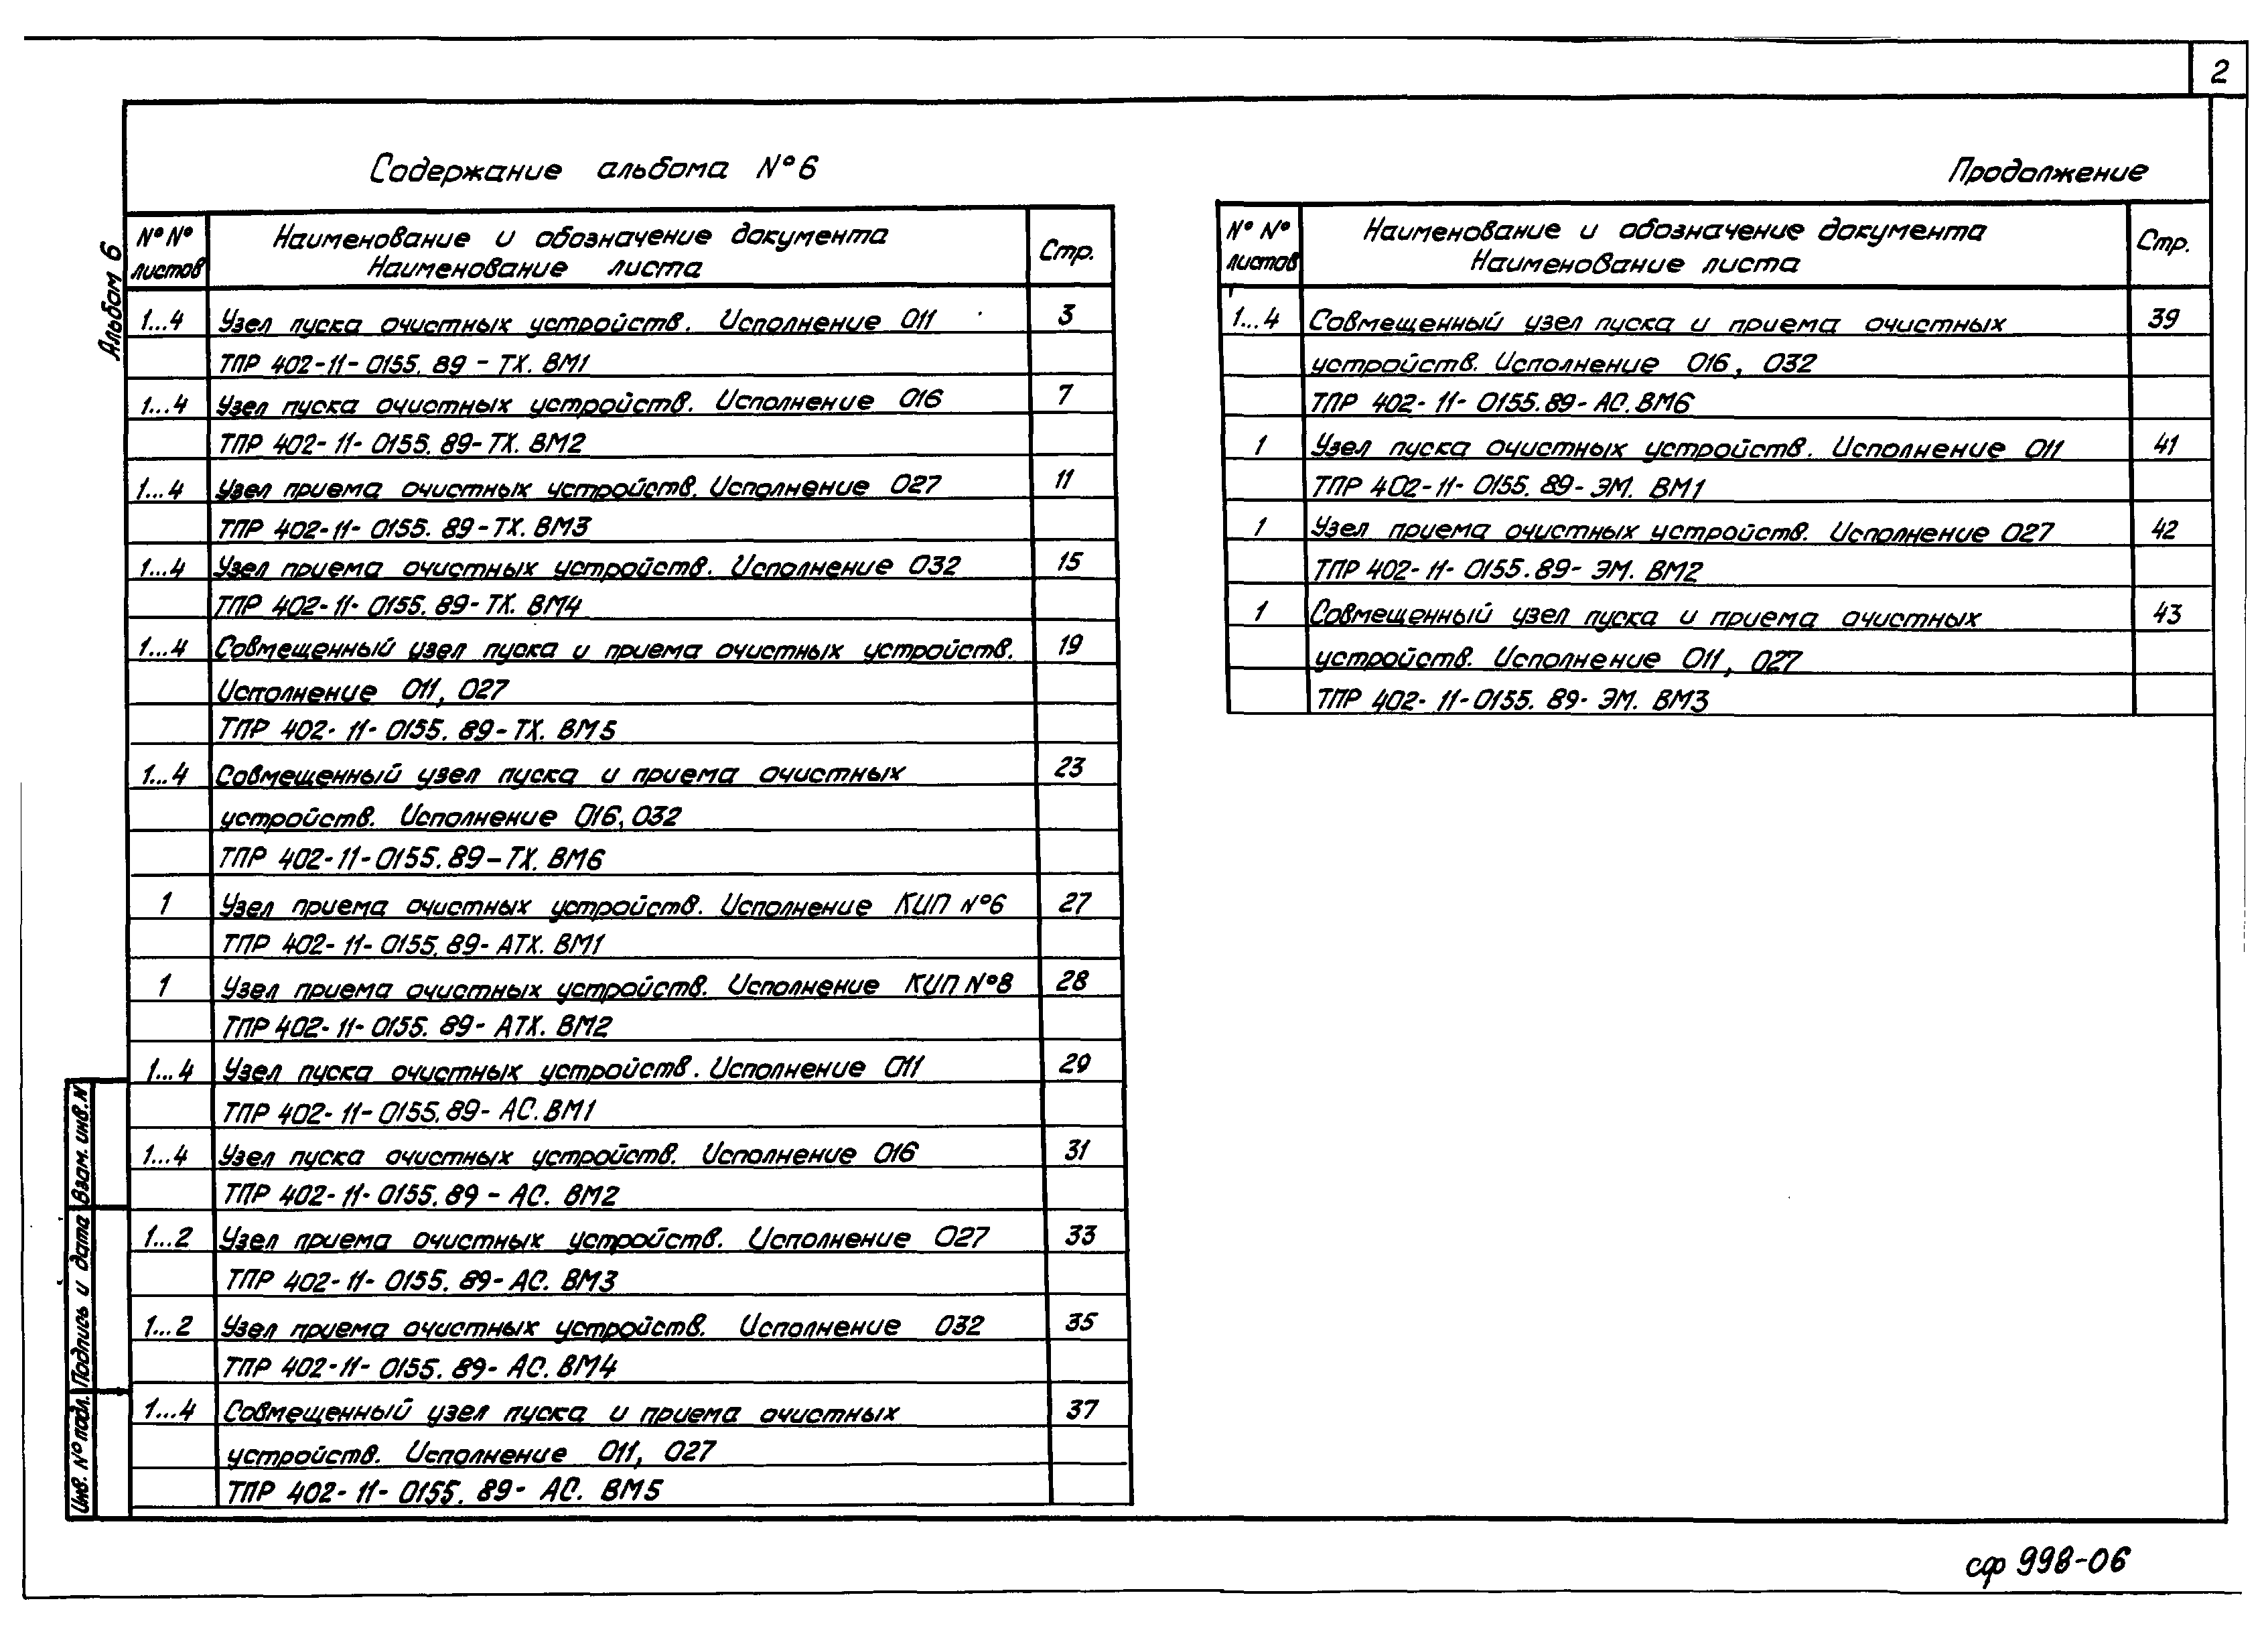 2
Содержание альбома N°6
Альбом 6
N°N° листов
Наименование и обозначение документа
Наименование листа
Стр.
1...4 Узел пуска очистных устройств. Исполнение 011 3
ТПР 402-11-0155.89-ТХ.ВМ1
1...4 Узел пуска очистных устройств. Исполнение 016 7
ТПР 402-11-0155.89-ТХ.ВМ2
1...4 Узел приема очистных устройств. Исполнение 027 11
ТПР 402-11-0155.89-ТХ.ВМ3
1...4 Узел приема очистных устройств. Исполнение 032 15
ТПР 402-11-0155.89-ТХ.ВМ4
1...4 Совмещенный узел пуска и приема очистных устройств. 19
Исполнение 011, 027
ТПР 402-11-0155.89-ТХ.ВМ5
1...4 Совмещенный узел пуска и приема очистных 23
устройств. Исполнение 016, 032
ТПР 402-11-0155.89-ТХ.ВМ6
1 Узел приема очистных устройств. Исполнение КИП N°6 27
ТПР 402-11-0155.89-АТХ.ВМ1
1 Узел приема очистных устройств. Исполнение КИП N°8 28
ТПР 402-11-0155.89-АТХ.ВМ2
1...4 Узел пуска очистных устройств. Исполнение 011 29
ТПР 402-11-0155.89-АС.ВМ1
1...4 Узел пуска очистных устройств. Исполнение 016 31
ТПР 402-11-0155.89-АС.ВМ2
1...2 Узел приема очистных устройств. Исполнение 027 33
ТПР 402-11-0155.89-АС.ВМ3
1...2 Узел приема очистных устройств. Исполнение 032 35
ТПР 402-11-0155.89-АС.ВМ4
1...4 Совмещенный узел пуска и приема очистных 37
устройств. Исполнение 011, 027
ТПР 402-11-0155.89-АС.ВМ5
Продолжение
N°N° листов
Наименование и обозначение документа
Наименование листа
Стр.
1...4 Совмещенный узел пуска и приема очистных 39
устройств. Исполнение 016, 032
ТПР 402-11-0155.89-АС.ВМ6
1 Узел пуска очистных устройств. Исполнение 011 41
ТПР 402-11-0155.89-ЭМ.ВМ1
1 Узел приема очистных устройств. Исполнение 027 42
ТПР 402-11-0155.89-ЭМ.ВМ2
1 Совмещенный узел пуска и приема очистных 43
устройств. Исполнение 011, 027
ТПР 402-11-0155.89-ЭМ.ВМ3
Взам. инв. N
Подпись и дата
Инв. N° подл.
сф 998-06